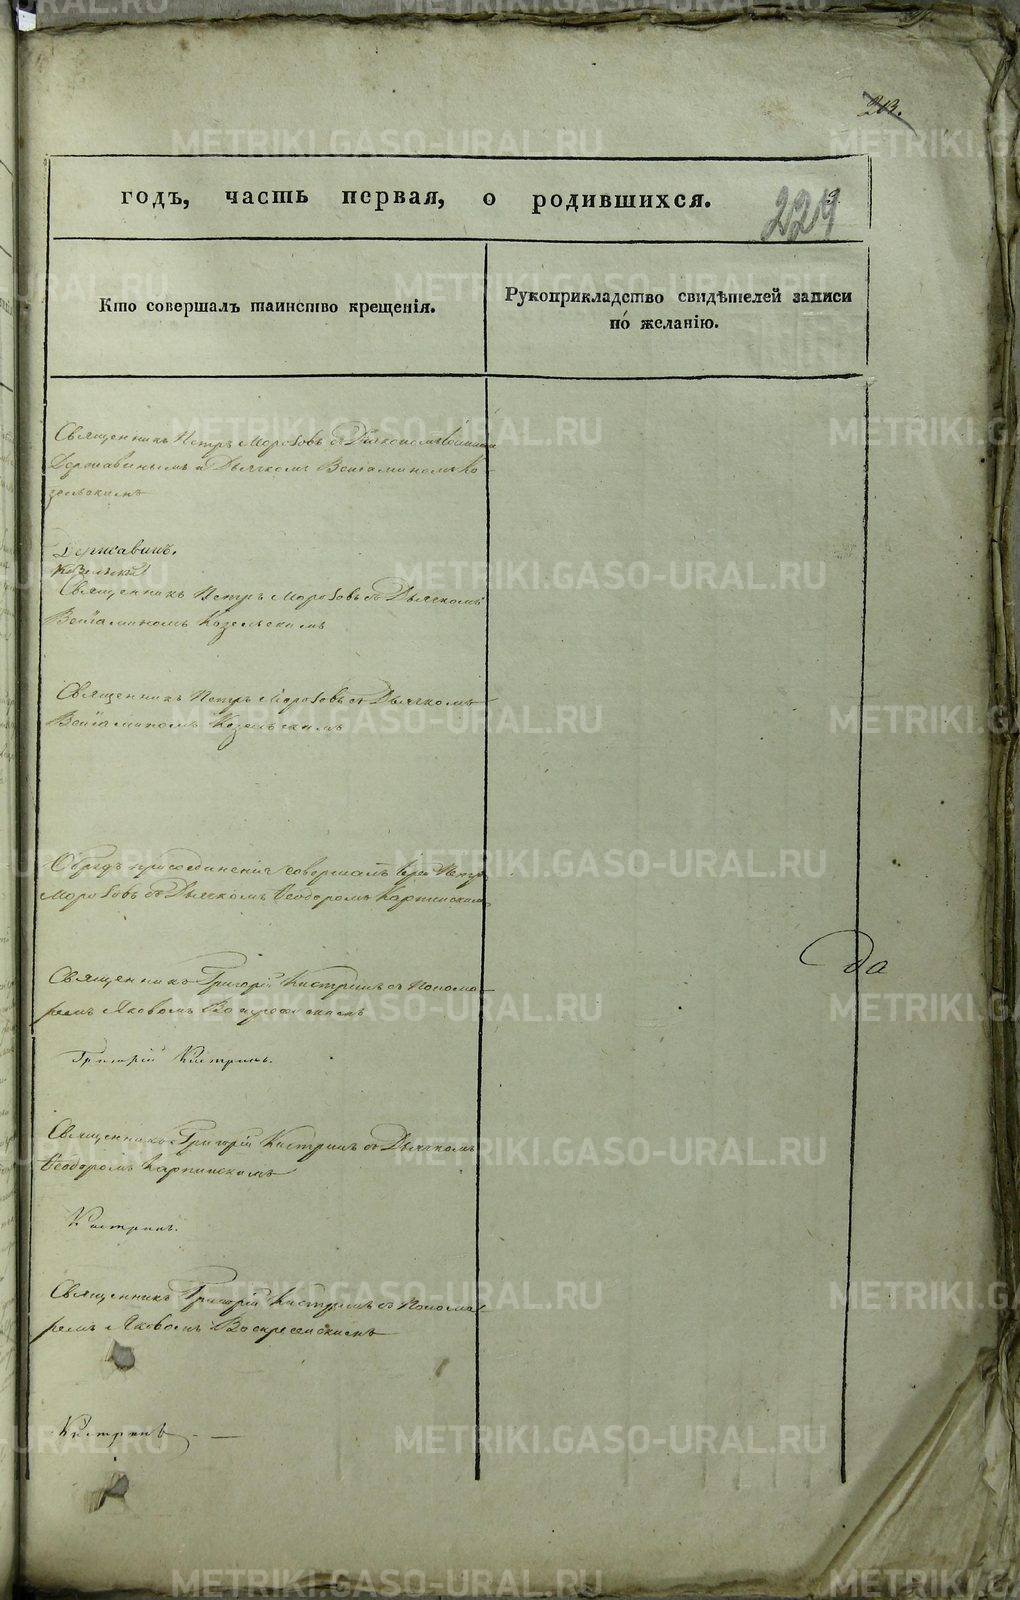 213.
годъ, часть первая, о родившихся.
229
Кто совершалъ таинство крещенія.
Рукоприкладство свидѣтелей записи
по желанію.
Священникъ Петръ Морозовъ съ Діакономъ
Державинымъ и Дьячкомъ Веніаминомъ Ко-
зельскимъ
Державинъ.
Козельскій
Священникъ Петръ Морозовъ съ Дьячкомъ
Веніаминомъ Козельскимъ
Священникъ Петръ Морозовъ съ Дьячкомъ
Веніаминомъ Козельскимъ
Обрядъ присоединенія совершалъ Іерей Петръ
Морозовъ съ Дьячкомъ Ѳеодоромъ Карпинскимъ
да
Священникъ Григорій Кистринъ съ Понома-
ремъ Яковомъ Воскресенскимъ
Григорій Кистринъ.
Священникъ Григорій Кистринъ съ Дьячкомъ
Ѳеодоромъ Карпинскимъ
Кистринъ.
Священникъ Григорій Кистринъ съ Понома-
ремъ Яковомъ Воскресенскимъ
Кистринъ
METRIKI.GASO-URAL.RU